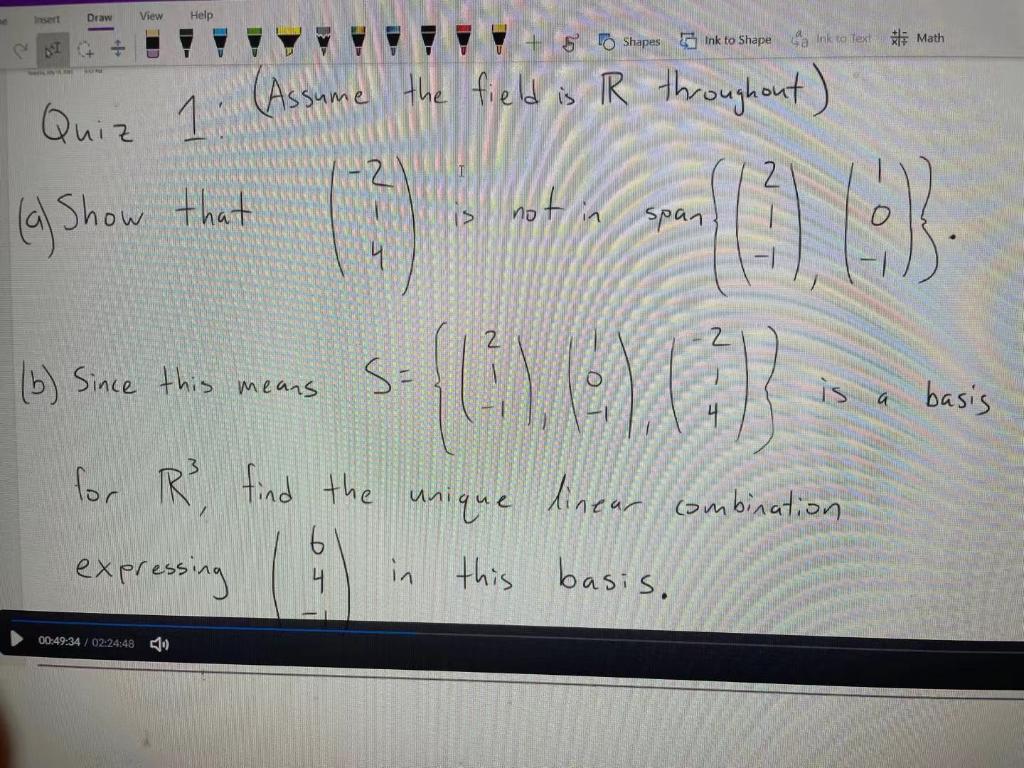 Insert Draw View Help
Shapes Ink to Shape Ink to Text Math
Quiz 1: (Assume the field is ℝ throughout)
(a) Show that (-2 1 4) is not in span{(2 1 -1), (1 0 -1)}.
(b) Since this means S = {(2 1 -1), (1 0 -1), (-2 1 4)} is a basis
for ℝ³, find the unique linear combination
expressing (6 4 -1) in this basis.
00:49:34 / 02:24:48